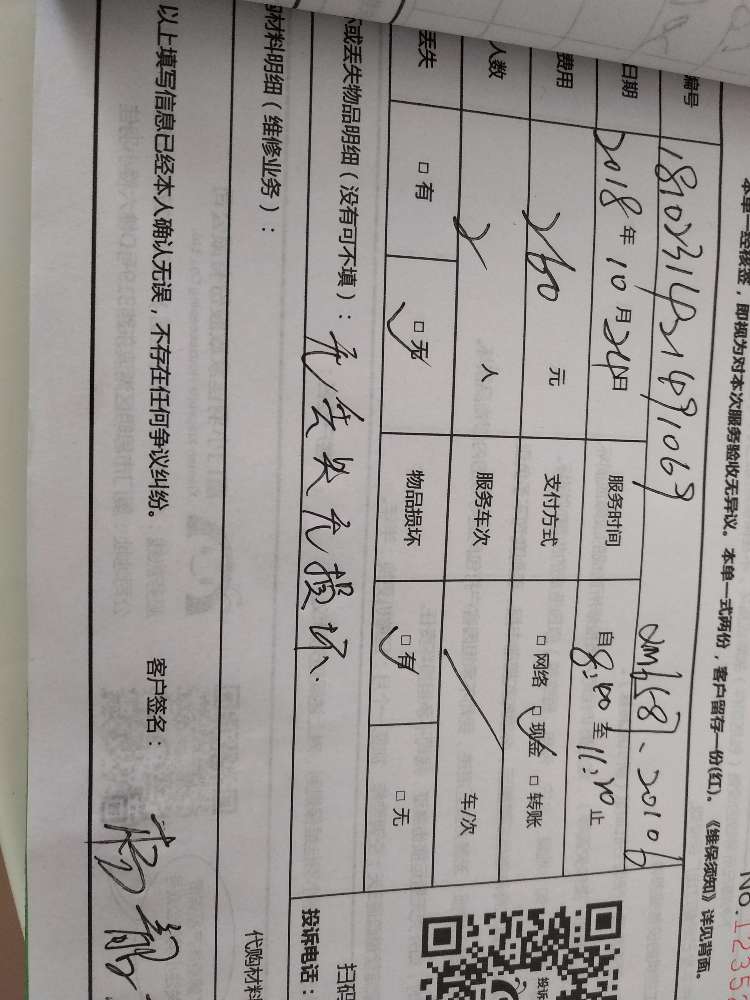 No.1235
本单一经核签，即视为对本次服务验收无异议。本单一式两份，客户留存一份(红)。《维保须知》详见背面。
编号
日期 2018年10月24日 服务时间 自8:40至11:20止
费用 260元 支付方式 □网络 □现金 □转账
人数 2人 服务车次 车/次
丢失 □有 □无 物品损坏 □有 □无
或丢失物品明细（没有可不填）：无丢失无损坏、
材料明细（维修业务）：
代购材料
以上填写信息已经本人确认无误，不存在任何争议纠纷。 客户签名：
投诉
扫码
投诉电话：